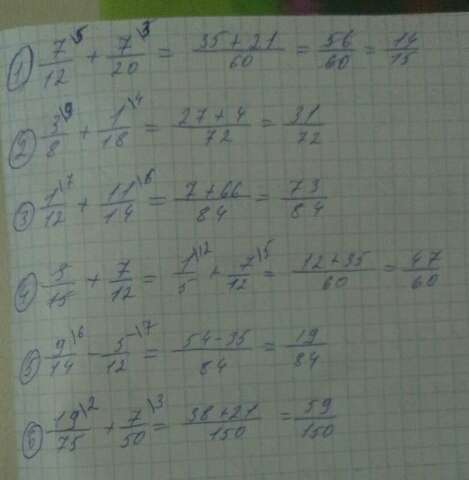 ① 7\5/12 + 7\3/20 = 35+21/60 = 56/60 = 14/15
② 3\9/8 + 1\4/18 = 27+4/72 = 31/72
③ 1\7/12 + 11\6/14 = 7+66/84 = 73/84
④ 3/15 + 7/12 = 1\12/5 + 7\5/12 = 12+35/60 = 47/60
⑤ 9\6/14 - 5\7/12 = 54-35/84 = 19/84
⑥ 19\2/75 + 7\3/50 = 38+21/150 = 59/150